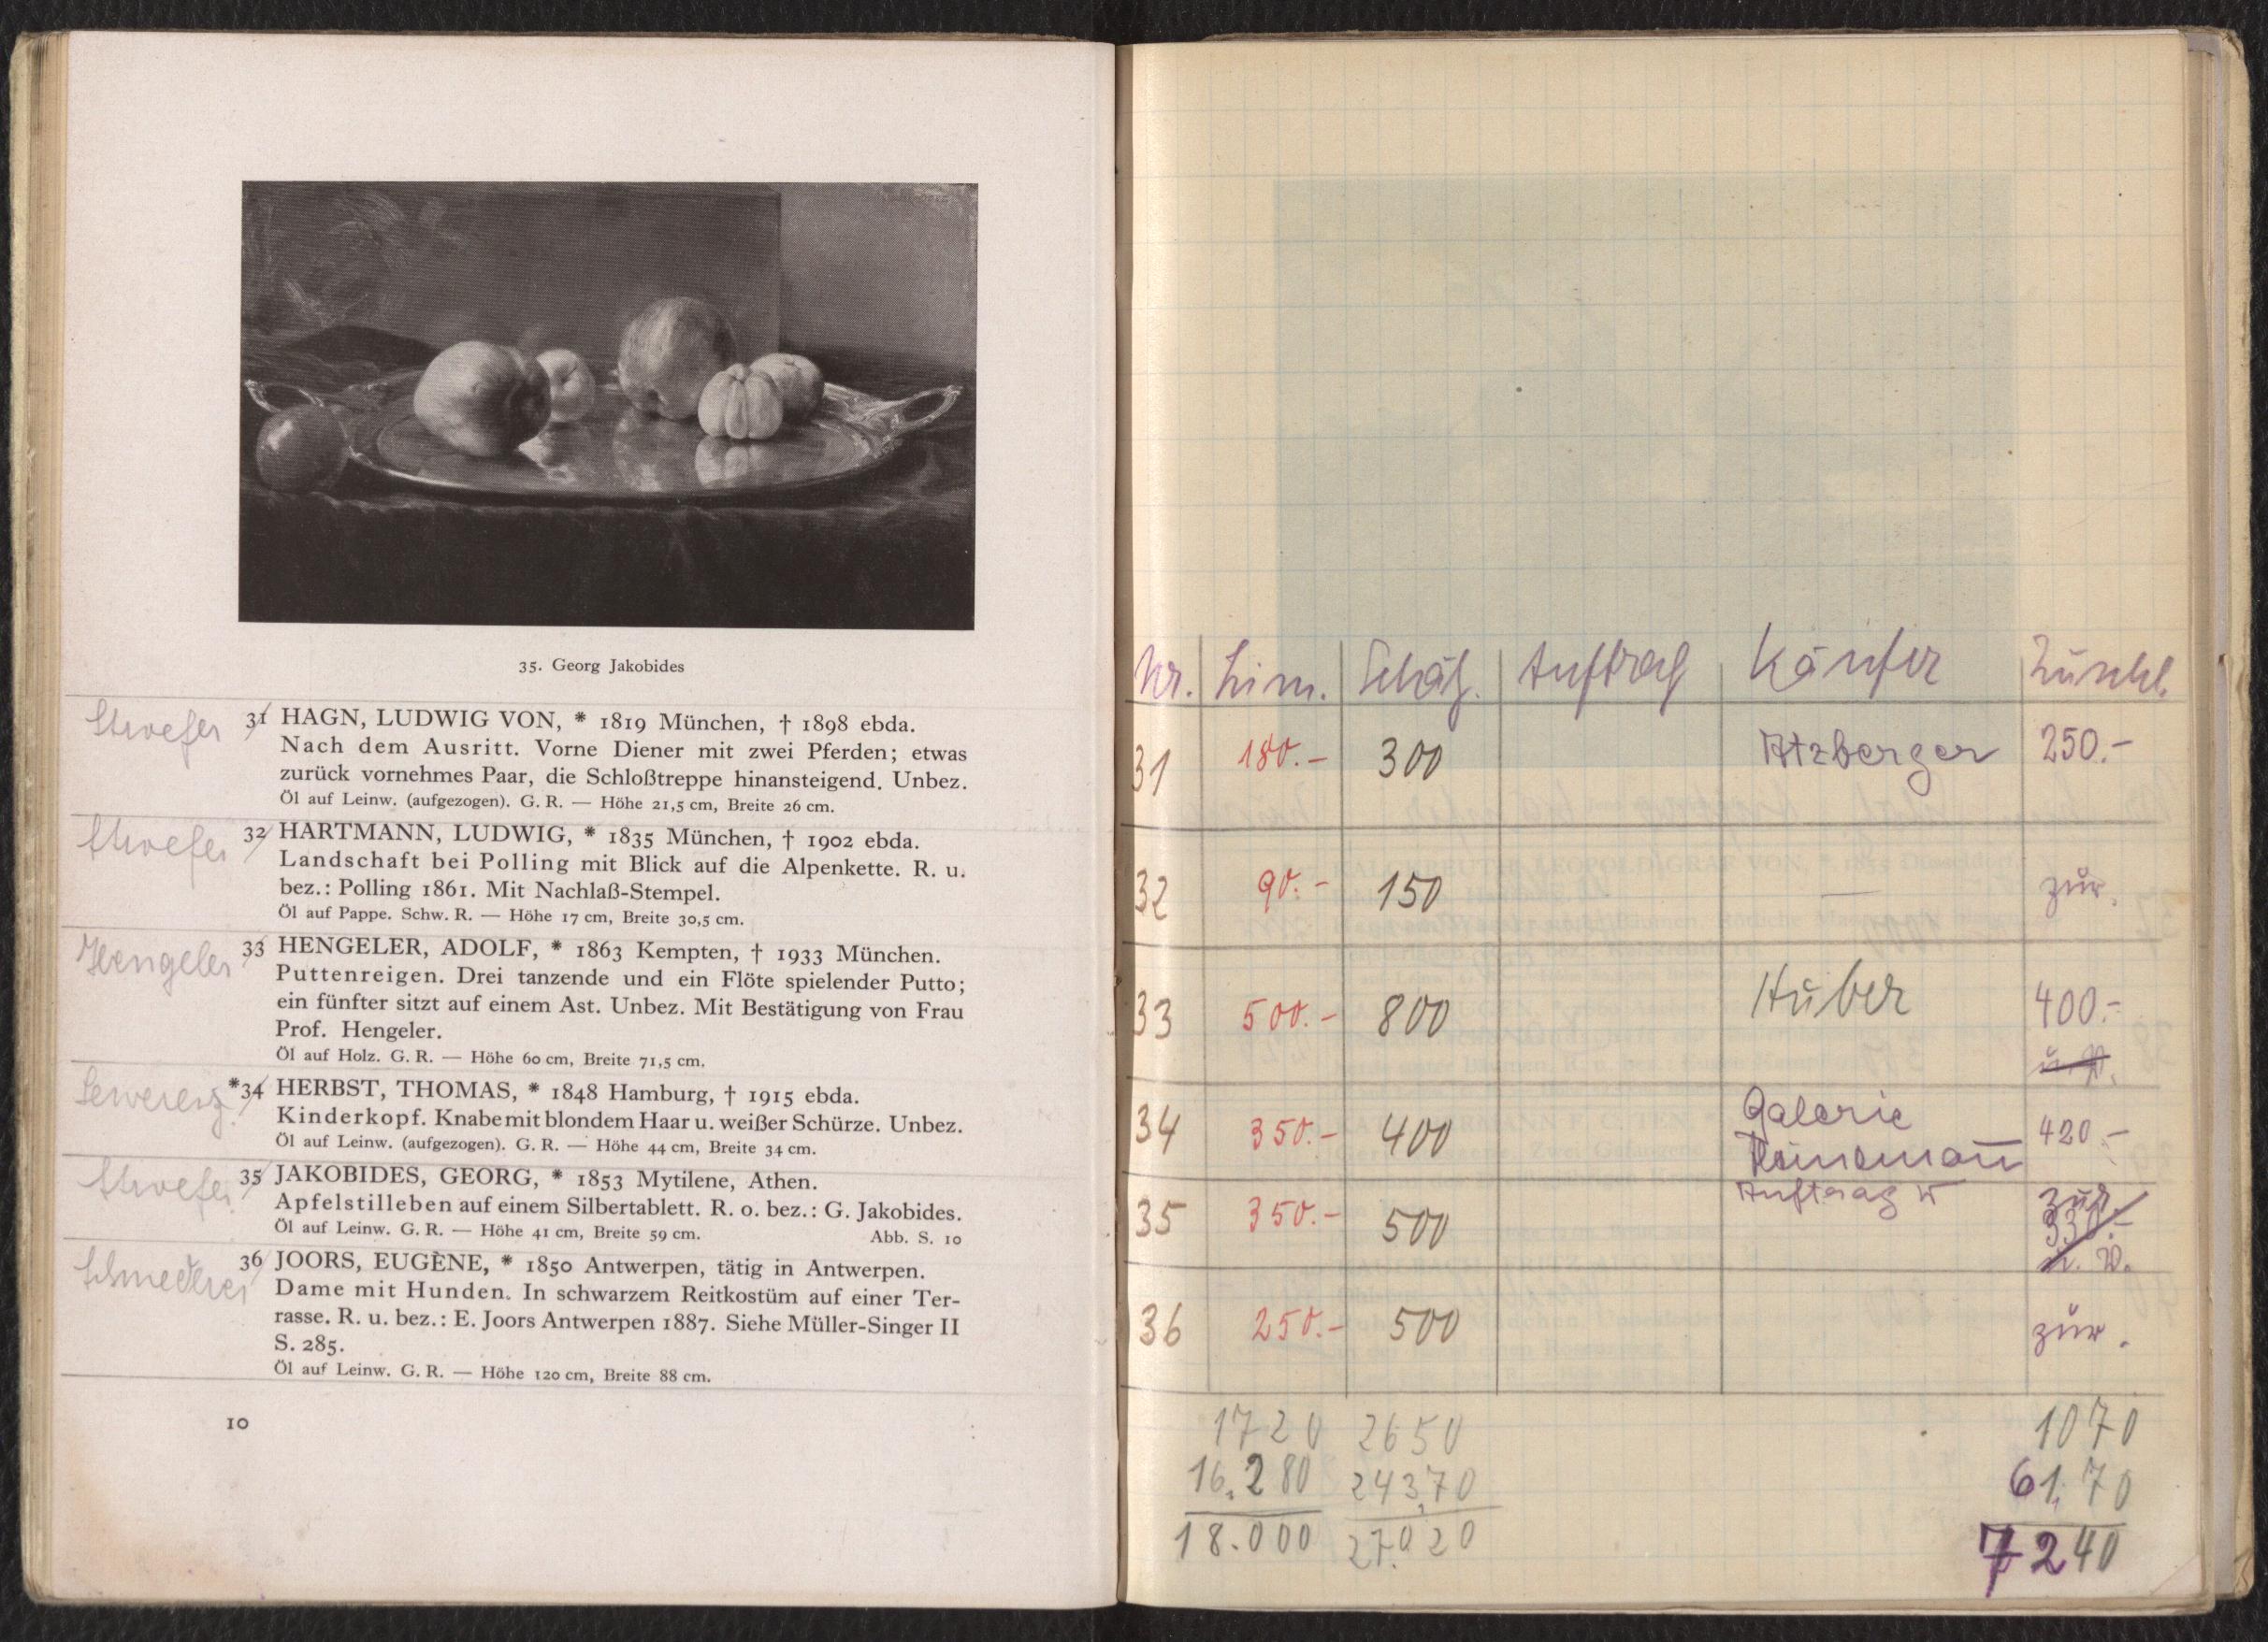 35. Georg Jakobides
31 HAGN, LUDWIG VON, * 1819 München, † 1898 ebda.
Nach dem Ausritt. Vorne Diener mit zwei Pferden; etwas
zurück vornehmes Paar, die Schloßtreppe hinansteigend. Unbez.
Öl auf Leinw. (aufgezogen). G. R. — Höhe 21,5 cm, Breite 26 cm.
32 HARTMANN, LUDWIG, * 1835 München, † 1902 ebda.
Landschaft bei Polling mit Blick auf die Alpenkette. R. u.
bez.: Polling 1861. Mit Nachlaß-Stempel.
Öl auf Pappe. Schw. R. — Höhe 17 cm, Breite 30,5 cm.
Hengeler 33 HENGELER, ADOLF, * 1863 Kempten, † 1933 München.
Puttenreigen. Drei tanzende und ein Flöte spielender Putto;
ein fünfter sitzt auf einem Ast. Unbez. Mit Bestätigung von Frau
Prof. Hengeler.
Öl auf Holz. G. R. — Höhe 60 cm, Breite 71,5 cm.
*34 HERBST, THOMAS, * 1848 Hamburg, † 1915 ebda.
Kinderkopf. Knabe mit blondem Haar u. weißer Schürze. Unbez.
Öl auf Leinw. (aufgezogen). G. R. — Höhe 44 cm, Breite 34 cm.
35 JAKOBIDES, GEORG, * 1853 Mytilene, Athen.
Apfelstilleben auf einem Silbertablett. R. o. bez.: G. Jakobides.
Öl auf Leinw. G. R. — Höhe 41 cm, Breite 59 cm. Abb. S. 10
36 JOORS, EUGÈNE, * 1850 Antwerpen, tätig in Antwerpen.
Dame mit Hunden. In schwarzem Reitkostüm auf einer Ter-
rasse. R. u. bez.: E. Joors Antwerpen 1887. Siehe Müller-Singer II
S. 285.
Öl auf Leinw. G. R. — Höhe 120 cm, Breite 88 cm.
10
Nr. Lim. Schätz. Auftrag Käufer Zuschl.
31 180.- 300 Atzberger 250.-
32 90.- 150 — zur.
33 500.- 800 Huber 400.-
34 350.- 400 Galerie 420.-
Heinemann
35 350.- 500 Auftrag zur.
350.-
36 250.- 500 zur.
1720 2650 1070
16.280 24370 6170
18.000 27.020 7240